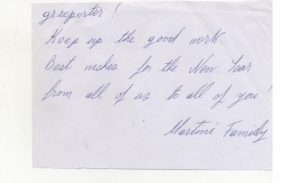 grreporter!
Keep up the good work
Best wishes for the New Year
from all of us to all of you!
Martini Family